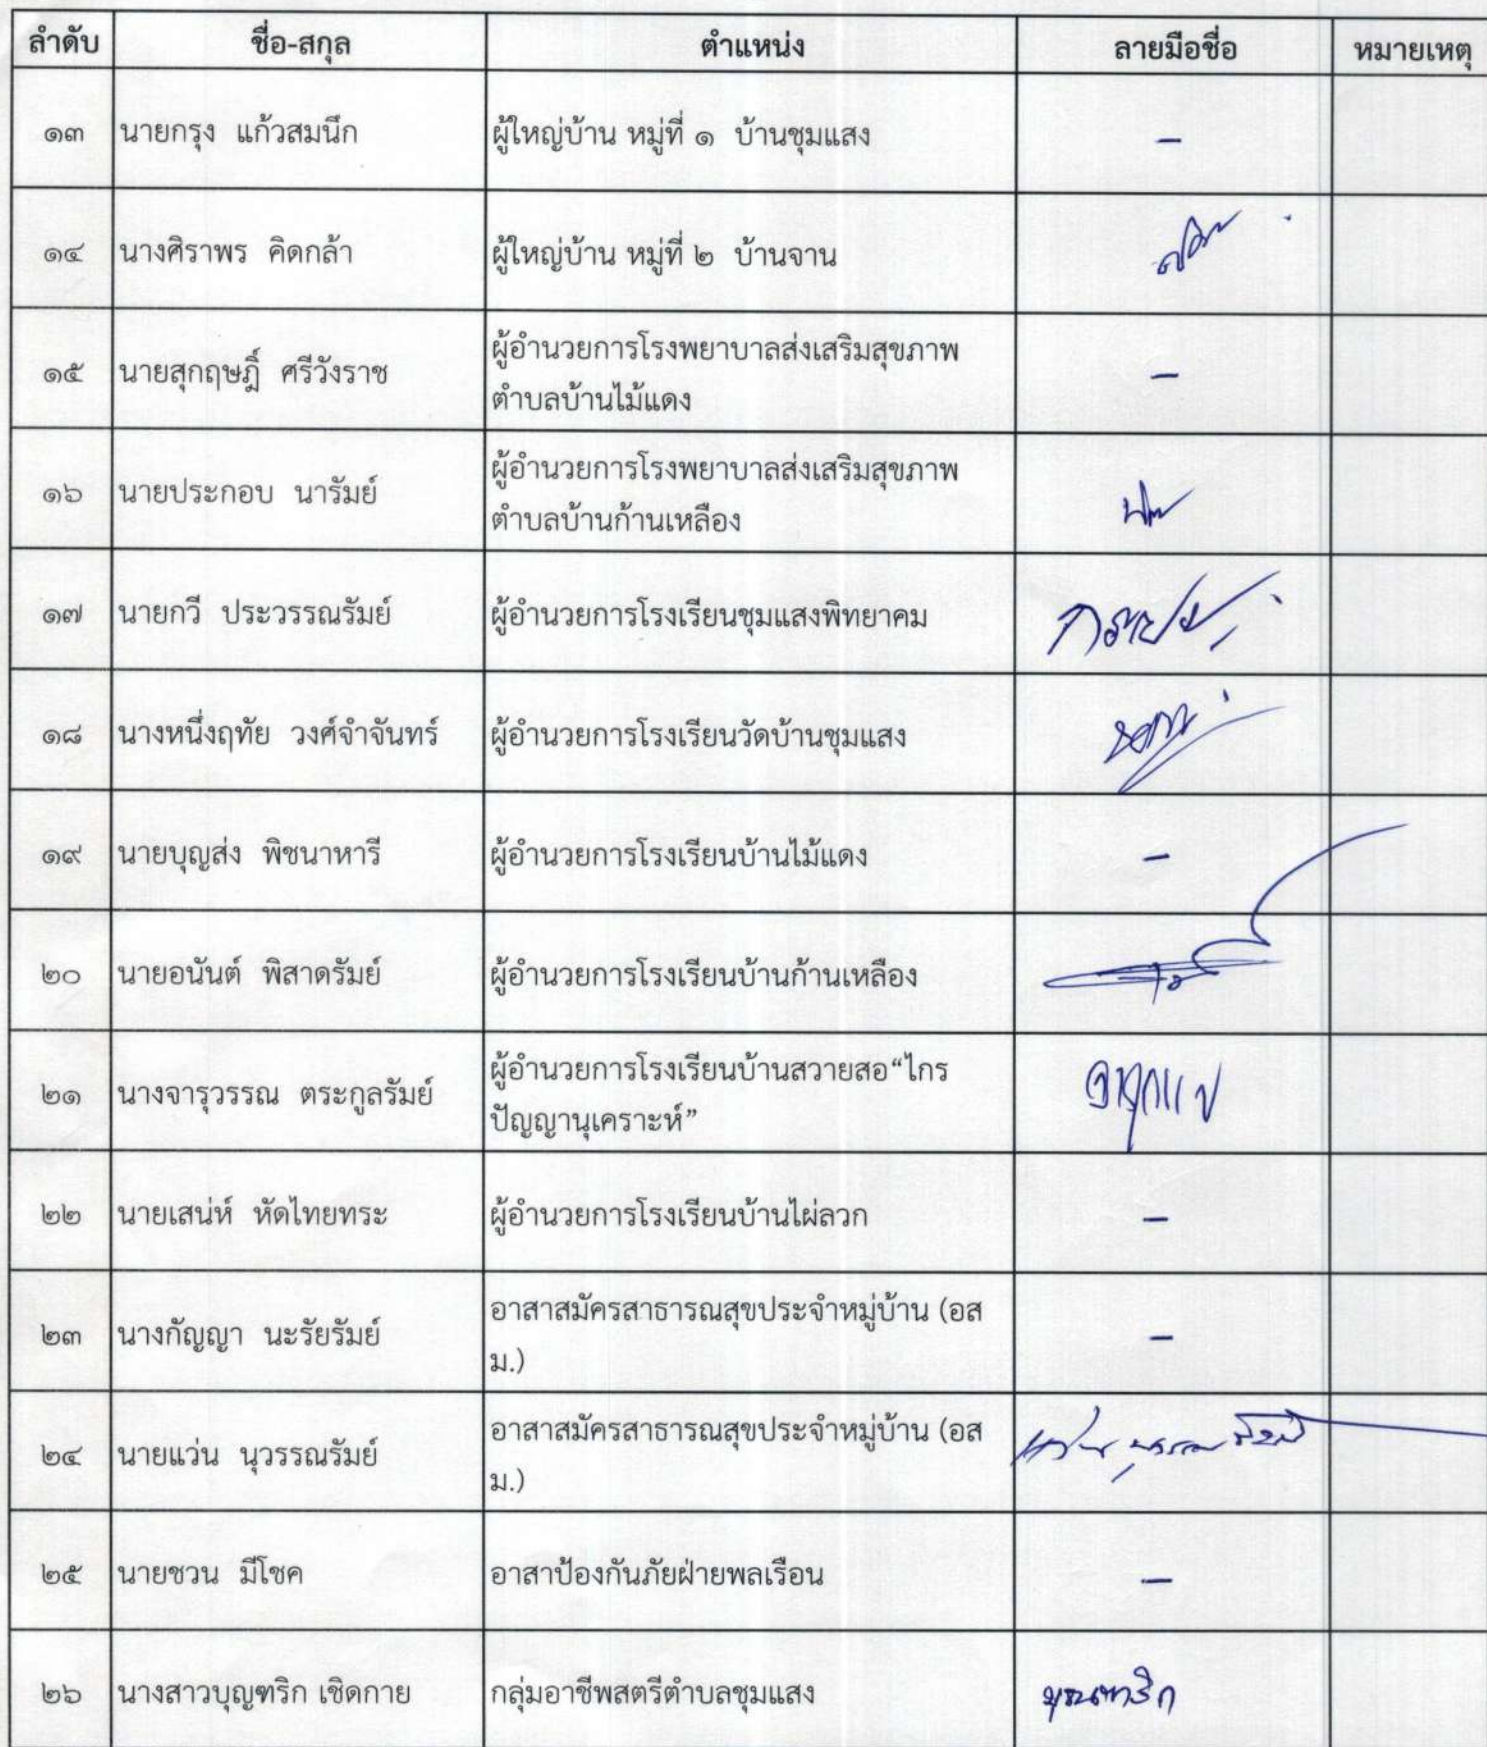 ลำดับ ชื่อ-สกุล ตำแหน่ง ลายมือชื่อ หมายเหตุ
๑๓ นายกรุง แก้วสมนึก ผู้ใหญ่บ้าน หมู่ที่ ๑ บ้านชุมแสง –
๑๔ นางศิราพร คิดกล้า ผู้ใหญ่บ้าน หมู่ที่ ๒ บ้านจาน
๑๕ นายสุกฤษฎิ์ ศรีวังราช ผู้อำนวยการโรงพยาบาลส่งเสริมสุขภาพ –
ตำบลบ้านไม้แดง
๑๖ นายประกอบ นารัมย์ ผู้อำนวยการโรงพยาบาลส่งเสริมสุขภาพ
ตำบลบ้านก้านเหลือง
๑๗ นายกวี ประวรรณรัมย์ ผู้อำนวยการโรงเรียนชุมแสงพิทยาคม
๑๘ นางหนึ่งฤทัย วงศ์จำจันทร์ ผู้อำนวยการโรงเรียนวัดบ้านชุมแสง
๑๙ นายบุญส่ง พิชนาหารี ผู้อำนวยการโรงเรียนบ้านไม้แดง –
๒๐ นายอนันต์ พิสาดรัมย์ ผู้อำนวยการโรงเรียนบ้านก้านเหลือง
๒๑ นางจารุวรรณ ตระกูลรัมย์ ผู้อำนวยการโรงเรียนบ้านสวายสอ“ไกร
ปัญญานุเคราะห์”
๒๒ นายเสน่ห์ หัดไทยทระ ผู้อำนวยการโรงเรียนบ้านไผ่ลวก –
๒๓ นางกัญญา นะรัยรัมย์ อาสาสมัครสาธารณสุขประจำหมู่บ้าน (อส –
ม.)
๒๔ นายแว่น นุวรรณรัมย์ อาสาสมัครสาธารณสุขประจำหมู่บ้าน (อส
ม.)
๒๕ นายชวน มีโชค อาสาป้องกันภัยฝ่ายพลเรือน –
๒๖ นางสาวบุญฑริก เชิดกาย กลุ่มอาชีพสตรีตำบลชุมแสง